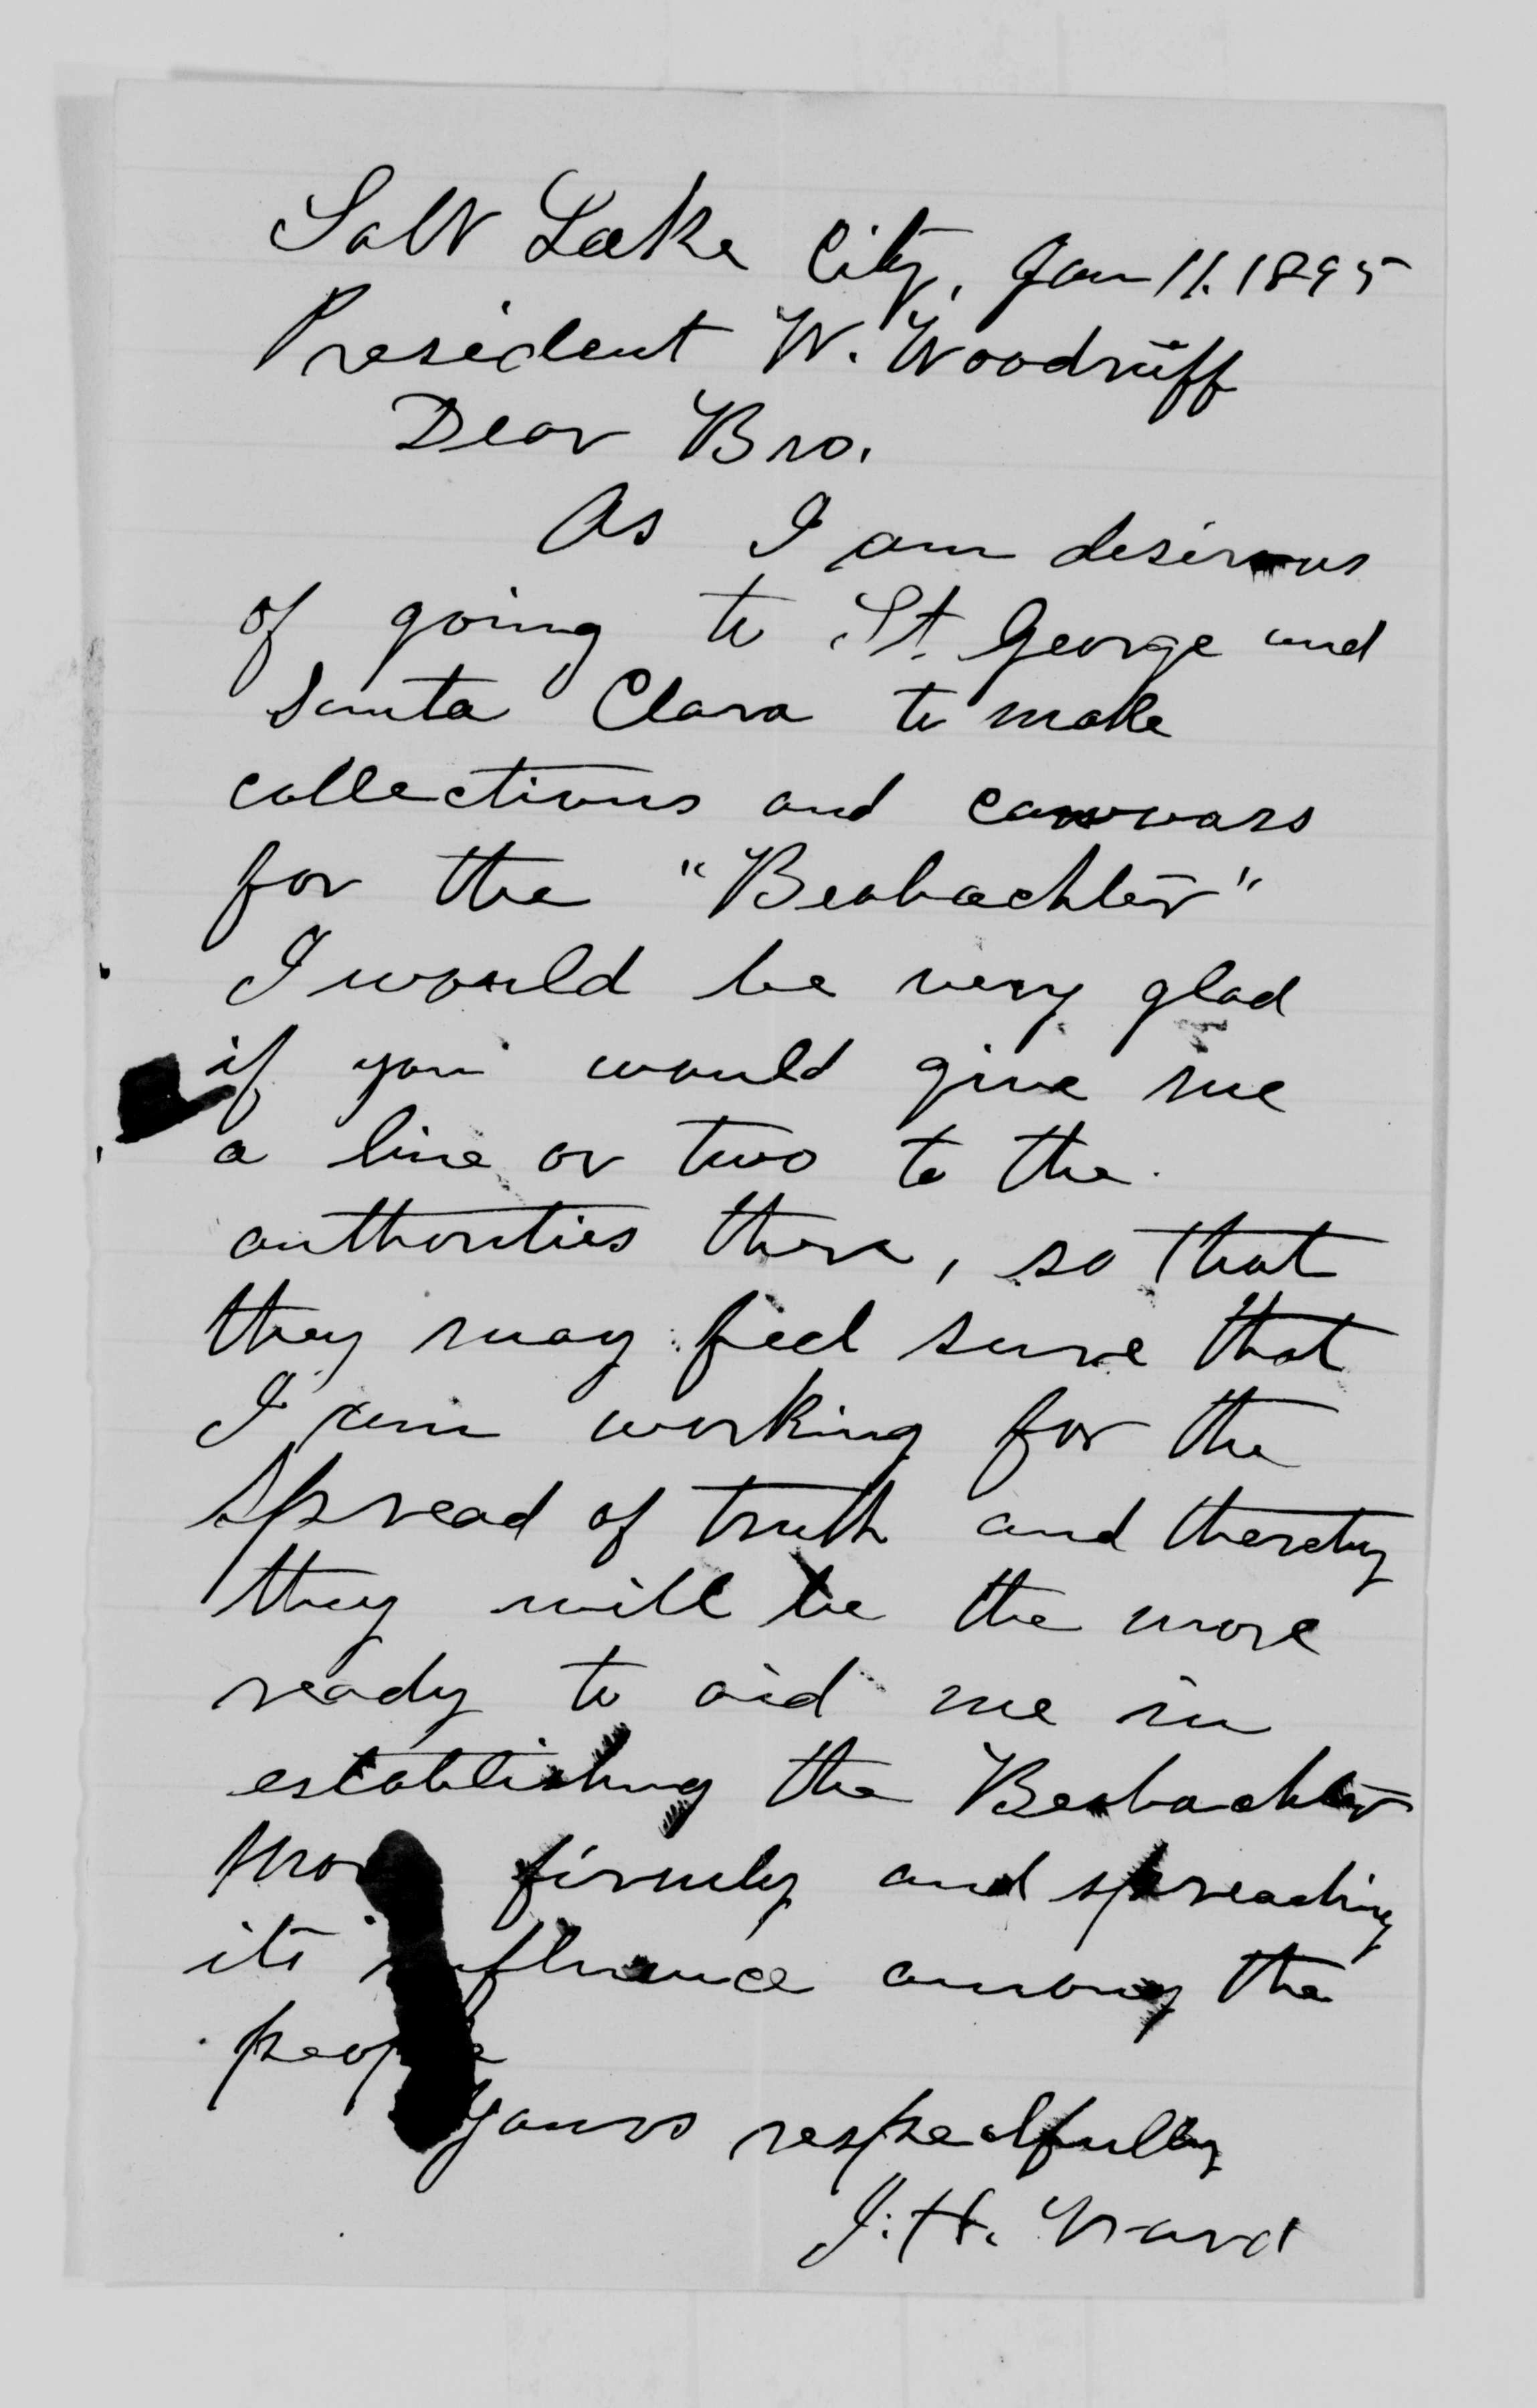 Salt Lake City, Jan 11. 1895
President W. Woodruff
Dear Bro.
As I am desirous
of going to St. George and
Santa Clara to make
collections and canvass
for the "Beobachter"
I would be very glad
if you would give me
a line or two to the
authorities there, so that
they may feel sure that
I am working for the
spread of truth and thereby
they will be the more
ready to aid me in
establishing the Beobachter
more firmly and spreading
its influence among the
people
Yours respectfully
J. H. Ward